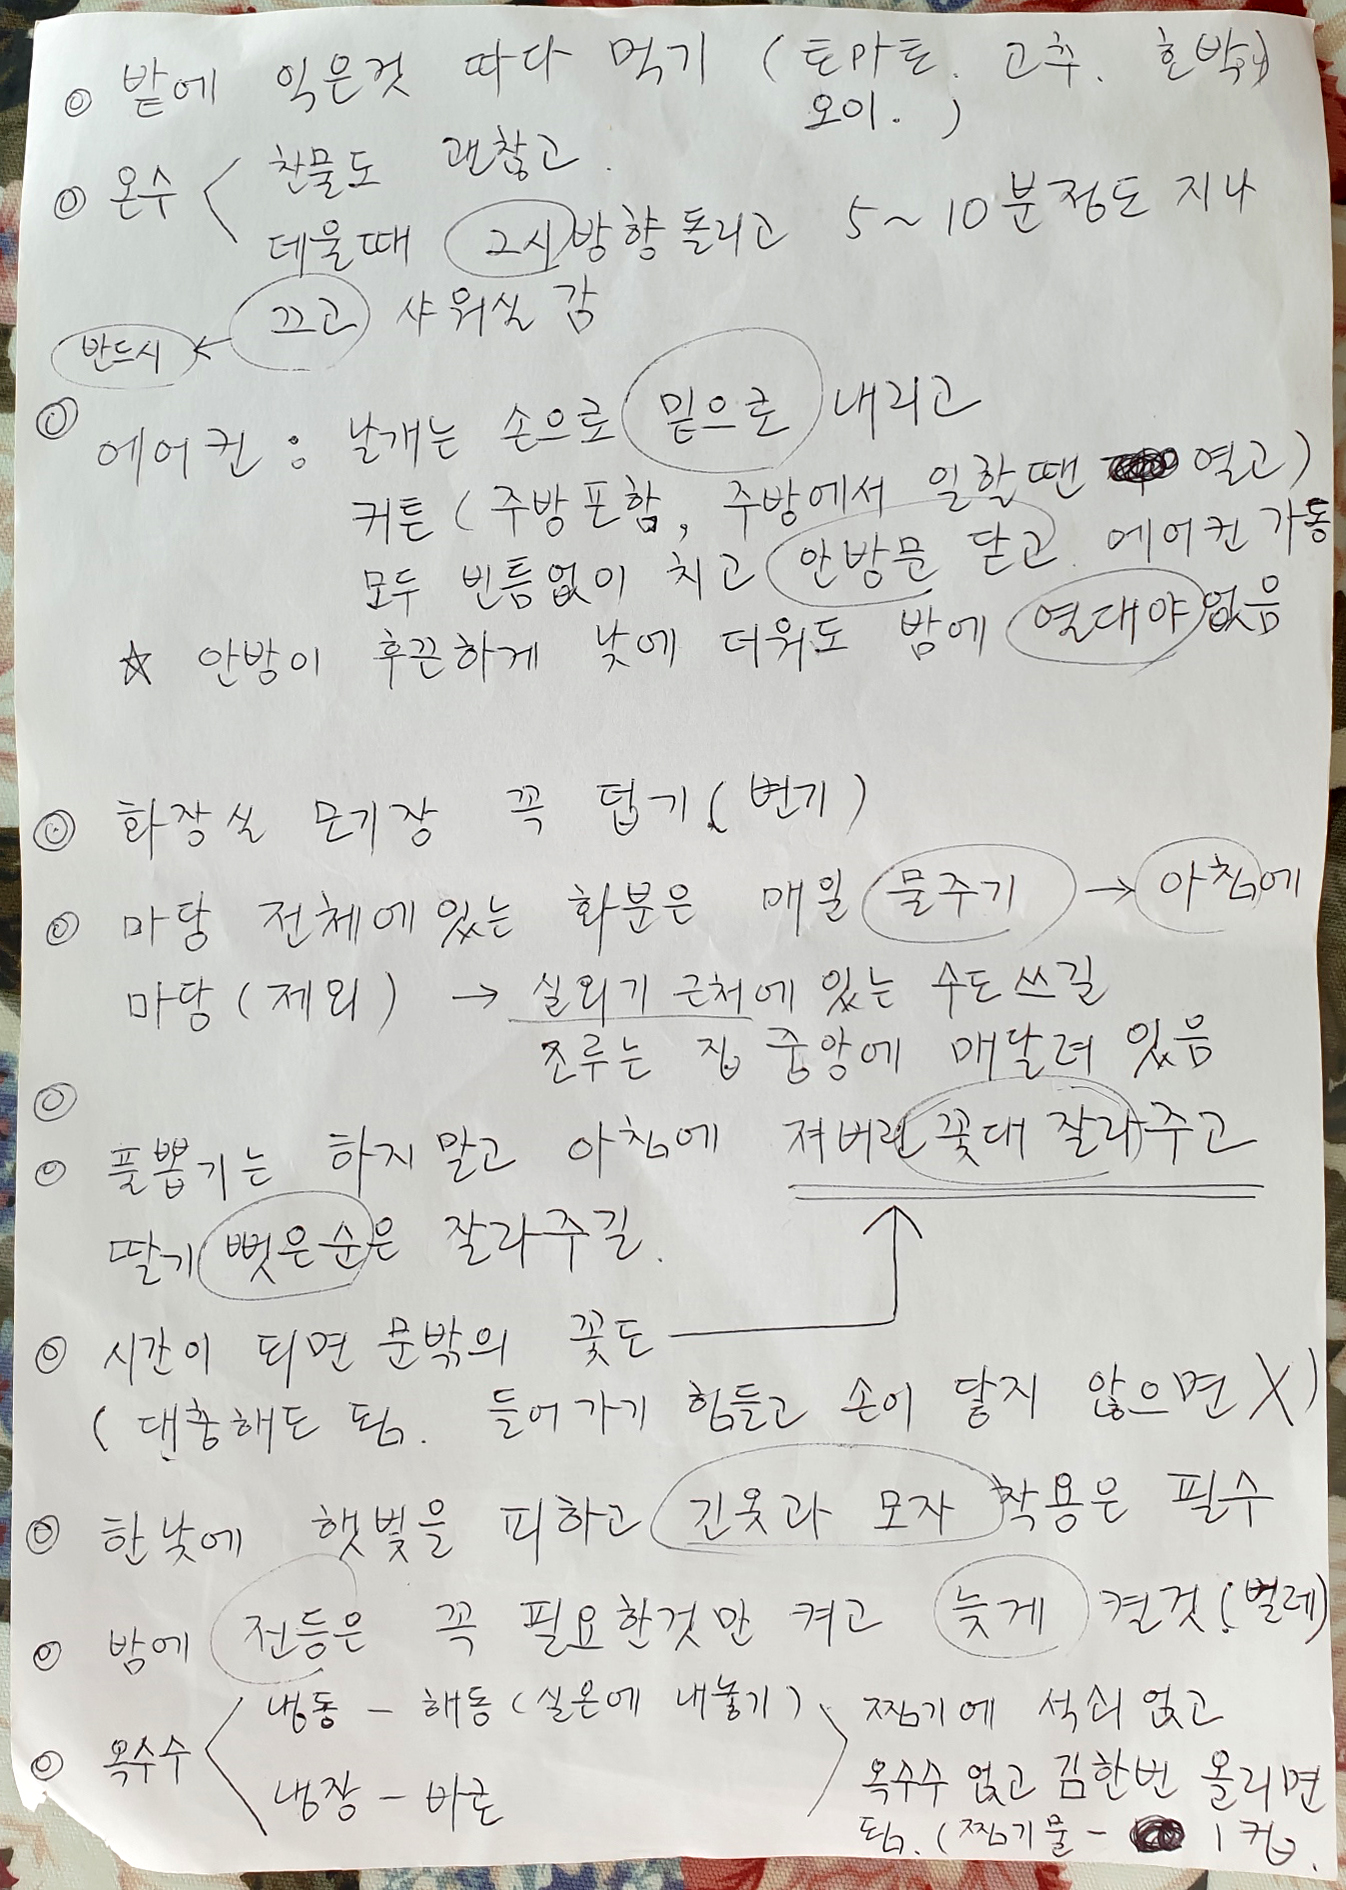 ◎ 밭에 익은것 따다 먹기 (토마토. 고추. 호박)
오이. )
◎ 온수 < 찬물도 괜찮고.
데울때 2시방향 돌리고 5~10분정도 지나
끄고 샤워실 감
반드시 ←
◎ 에어컨 : 날개는 손으로 밑으로 내리고
커튼 (주방포함, 주방에서 일할땐 열고)
모두 빈틈없이 치고 안방문 닫고 에어컨 가동
☆ 안방이 후끈하게 낮에 더워도 밤에 열대야 없음
◎ 화장실 모기장 꼭 덥기 (변기)
◎ 마당 전체에있는 화분은 매일 물주기 → 아침에
마당(제외) → 실외기 근처에 있는 수도쓰길
조루는 집 중앙에 매달려 있음
◎
◎ 풀뽑기는 하지말고 아침에 져버린 꽃대 잘라주고
딸기 뻗은순은 잘라주길.
◎ 시간이 되면 문밖의 꽃도
(대충해도 됨. 들어가기 힘들고 손이 닿지 않으면 X)
◎ 한낮에 햇빛을 피하고 긴옷과 모자 착용은 필수
◎ 밤에 전등은 꼭 필요한것만 켜고 늦게 켤것 (벌레)
◎ 옥수수 < 냉동 - 해동(실온에 내놓기)
냉장 - 바로
> 찜기에 석쇠 얹고
옥수수 얹고 김한번 올리면
됨. (찜기물 - 1컵.